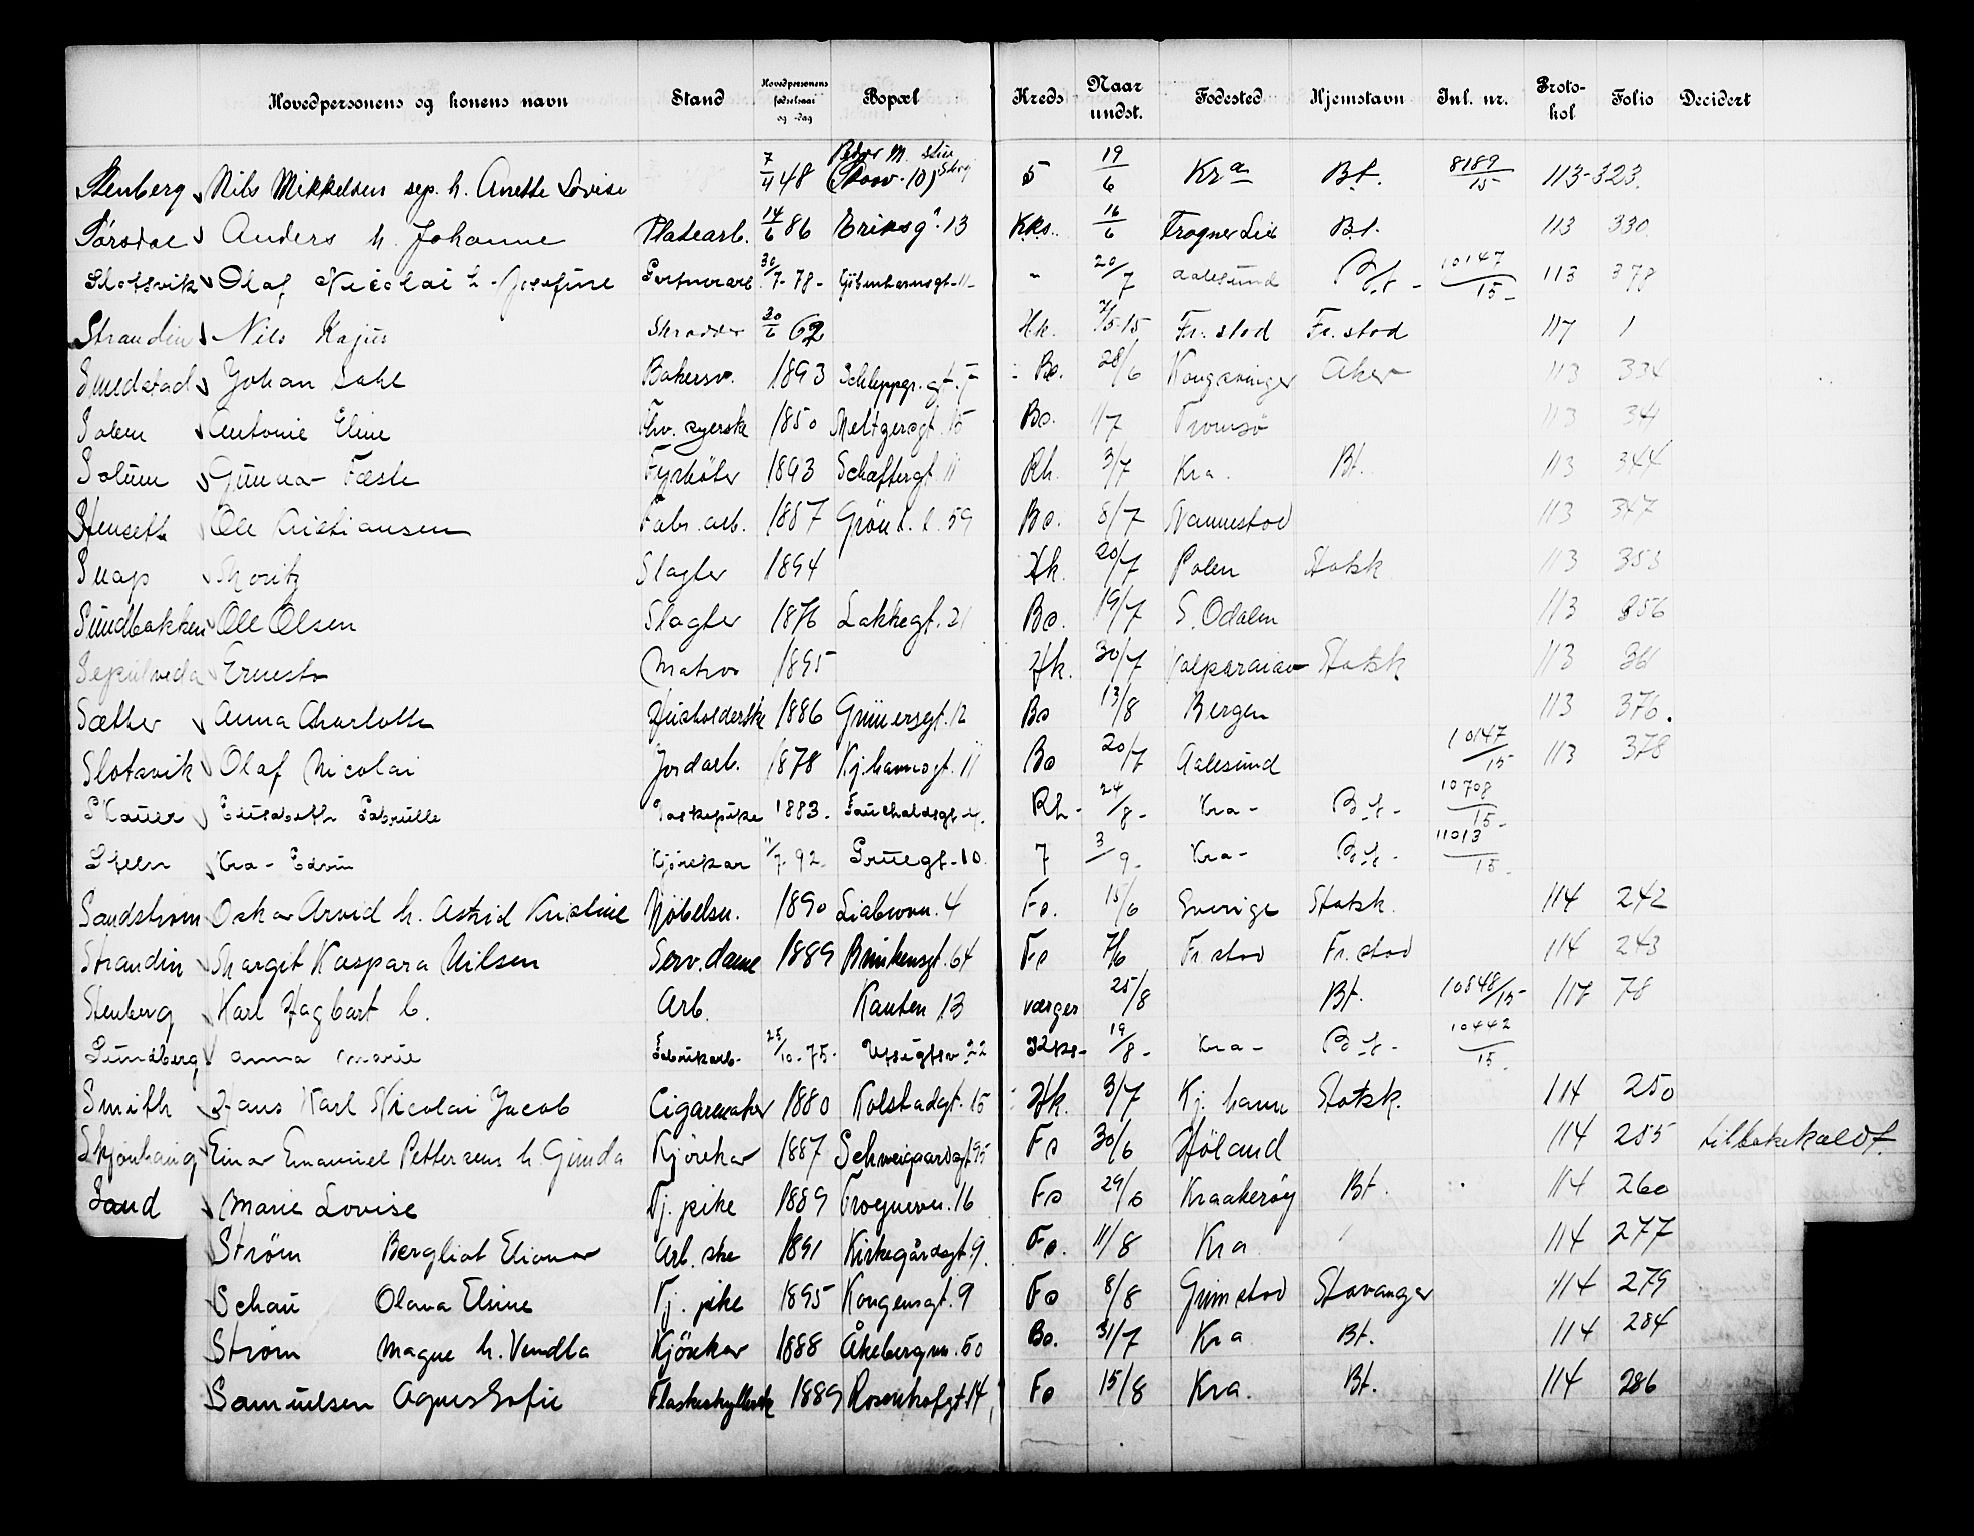 Hovedpersonens og konens navn Stand Hovedpersonens fødselsaar og -dag Bopæl Kreds Naar undst. Fødested Hjemstavn Inl. nr. Proto-kol Folio Decidert
Stenberg Nils Mikkelsen sep. h. Anette Lovise 7/4 48 5 19/6 Kra Bt. 8189/15 113-323.
Anders h. Johanne Pladearb. 14/6 86 Eriksg. 13 Kks. 16/6 Frogner Lier Bt. 113 330
Slotsvik Olaf Nicolai h. Josefine 30/7-78- Kjöbenhavnsgt-11- " 20/7 Aalesund Bt- 10147/15- 113 378
Strandin Nils Kajus Skrædder 20/6 62 Hk. 7/5-15 Fr. stad Fr. stad 117 1
Smedstad Johan Dahl Bakersv. 1893 Schleppgr. gt. 7 Bo. 28/6 Kongsvinger Aker 113 334
Solem Antonie Eline Fhv. syerske 1850 Meltzersgt. 15 Bo. 1/7 Tromsø 113 341
Solum Gunnar Fæste Fyrböter 1893 Schaftergt. 11 Rh. 3/7 Kra. Bt. 113 344
Stenseth Ole Kristiansen Fabr. arb. 1887 Grönl. l. 59 Bo. 8/7 Nannestad 113 347
Snap Moritz Slagter 1894 Hk. 20/7 Polen Statsk 113 353
Sundbakken Ole Olsen Slagter 1876 Lakkegt. 21 Bo. 19/7 S. Odalen 113 356
Sepulveda Ernesto Matros 1895 Hk. 30/7 Valparaiso Statsk 113 361
Sætter Anna Charlotte Husholderske 1886 Grünersgt. 12 Bo 13/8 Bergen 113 376.
Slotsvik Olaf Nicolai Jordarb. 1878 Kj.havnsgt. 11 Bo 20/7 Aalesund 10147/15 113 378
Skauer Elisabeth Gabrielle Vaskepike 1883- Fauchaldsgt-4. Rh- 24/8- Kra- Bt- 10708/15-
Steen Kra- Edvin Kjörekar 11/7-92- Gruegt-10. 7 3/9- Kra- Bt- 11013/15-
Sandstrøm Oskar Arvid h. Astrid Kristine Möbelsn. 1890 Liabroen. 4 Fo. 15/6 Sverige Statsk. 114 242
Strandin Margit Kaspara Nilsen Serv. dame 1889 Brinkensgt. 64 Fo 7/6 Fr. stad Fr. stad 114 243
Stenberg Karl Hagbart C. Arb. Kanten 13 værges 25/8 Bt. 10848/15- 117 78
Sundberg Anna Marie Fabrikarb- 25/10-75- Utsigtsv-22 19/8- Kra- Bt- 10442/15-
Smith Hans Karl Nicolai Jacob Cigarmaker 1880 Kolstadgt. 15 Hk. 3/7 Kj. havn Statsk. 114 250
Skjønhaug Einar Emanuel Pettersens h. Gunda Kjörekar 1887 Schweigaardsgt. 95 Fo 30/6 Höland 114 255 tilbakekaldt.
Sand Marie Lovise Tj. pike 1889 Frognervn. 16 Fo 29/6 Kraakerøy Bt. 114 260
Strøm Bergliot Elionor Arb. ske 1891 Kirkegårdsgt. 9. Fo. 11/8 Kra 114 277
Schau Olava Elsine Tj. pike 1895 Kongensgt. 9 Fo 8/8 Grimstad Stavanger 114 279
Strøm Magne h. Vendla Kjörekar 1888 Åkebergvn. 50 Bo. 31/7 Kra Bt. 114 284
Samuelsen Agnes Sofie Flaskeskyllerske 1889 Rosenhofgt. 14 Fo 15/8 Kra. Bt. 114 286